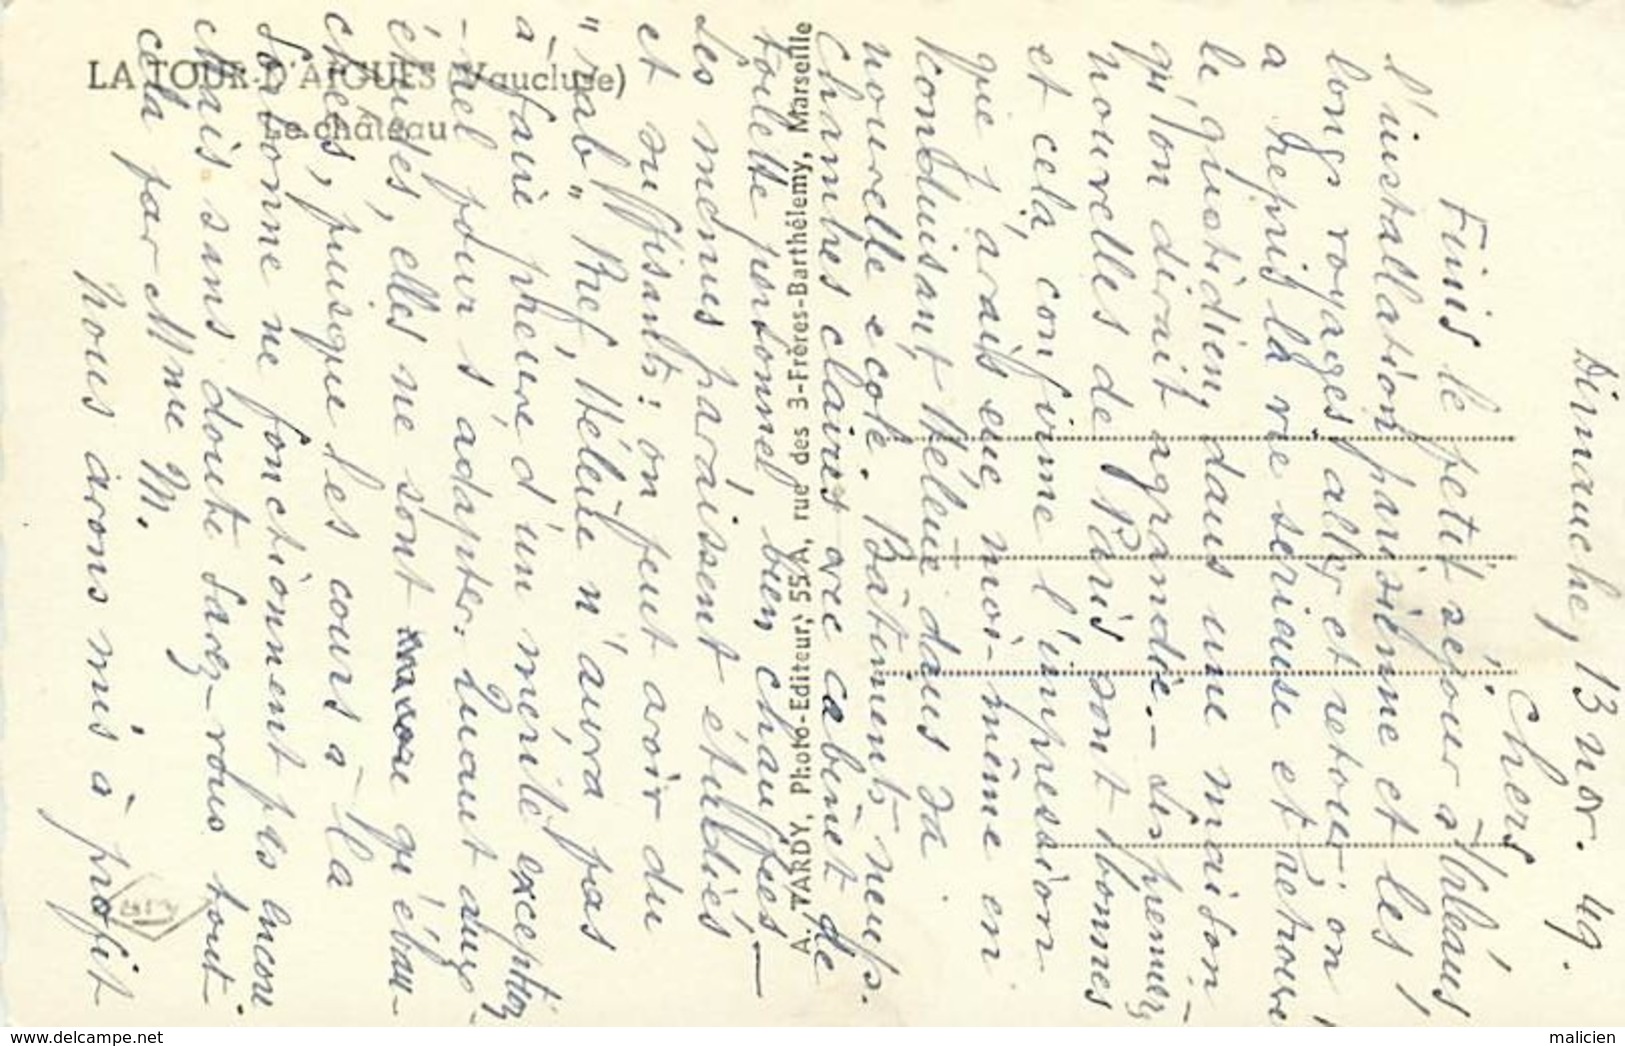 LA TOUR-D'AIGUES (Vaucluse)
Le château
A. TARDY, Photo-Editeur, 55 A, rue des 3-Frères-Barthélemy, Marseille
Dimanche, 13 nov. 49.
Chers
Finis le petit séjour orléans,
l'installation parisienne et les
longs voyages aller et retour, on
a repris la vie serieuse et retrouvé
le quotidien, dans une maison
qu'on dirait agrandie. – Les premières
nouvelles de Paris sont bonnes
et cela confirme l'impression
que j'avais eue moi-même en
conduisant Hélène dans sa
nouvelle école. Bâtiments neufs.
Chambres claires avec cabinet de
toilette personnel, bien chauffées –
Les menus paraissent étudiés
et suffisants : on peut avoir du
"rab" Bref, Hélène n'aura pas
à faire preuve d'un mérite exception-
-nel pour s'adapter. Quant aux
études, elles ne sont qu'ébau-
chées, puisque les cours à la
Sorbonne ne fonctionnent pas encore
Mais sans doute savez-vous tout
cela par Mme M.
Nous avons mis à profit
delcampe.net
malicien